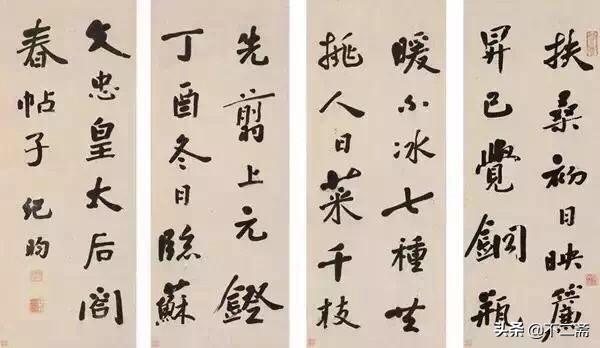 扶桑初日映簾
昇已覺銅瓶
暖不冰七種共
挑人日菜千枝
先剪上元鐙
丁酉冬日臨蘇
文忠皇太后閤
春帖子 紀昀
头条 @不二斋